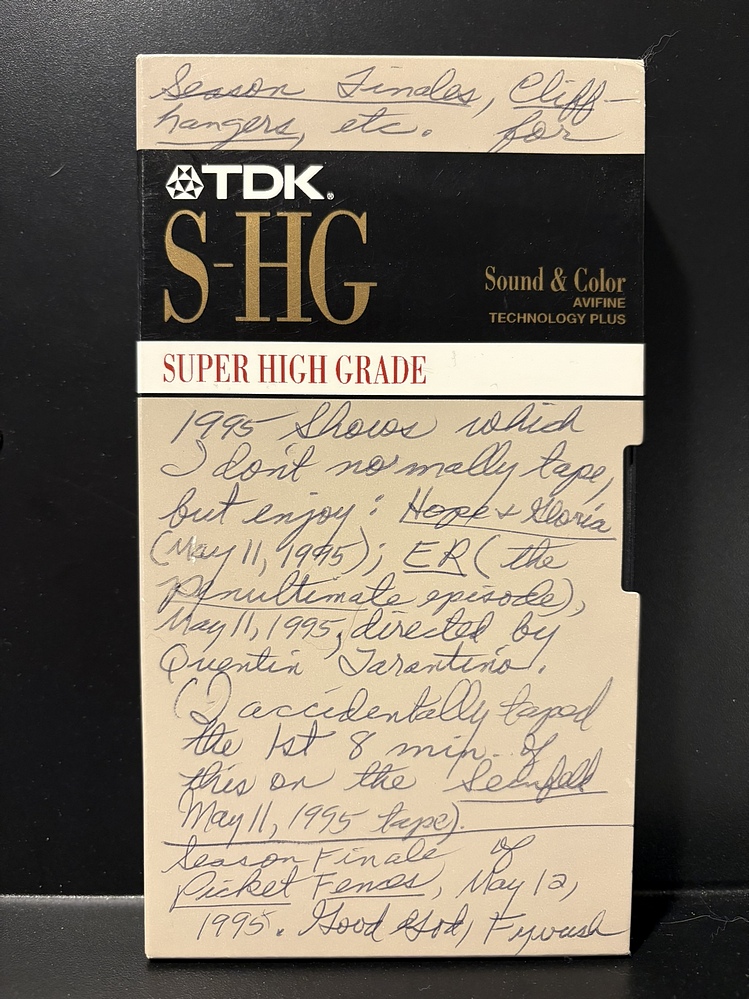 Season Finales, Cliff-
hangers, etc. for
TDK®
S-HG
Sound & Color
AVIFINE
TECHNOLOGY PLUS
SUPER HIGH GRADE
1995 Shows which
I don't normally tape,
but enjoy: Hope & Gloria
(May 11, 1995); ER (the
penultimate episode),
May 11, 1995, directed by
Quentin Tarantino.
(I accidentally taped
the 1st 8 min. of
this on the Seinfeld
May 11, 1995 tape).
Season Finale of
Picket Fences, May 12,
1995. Good God,